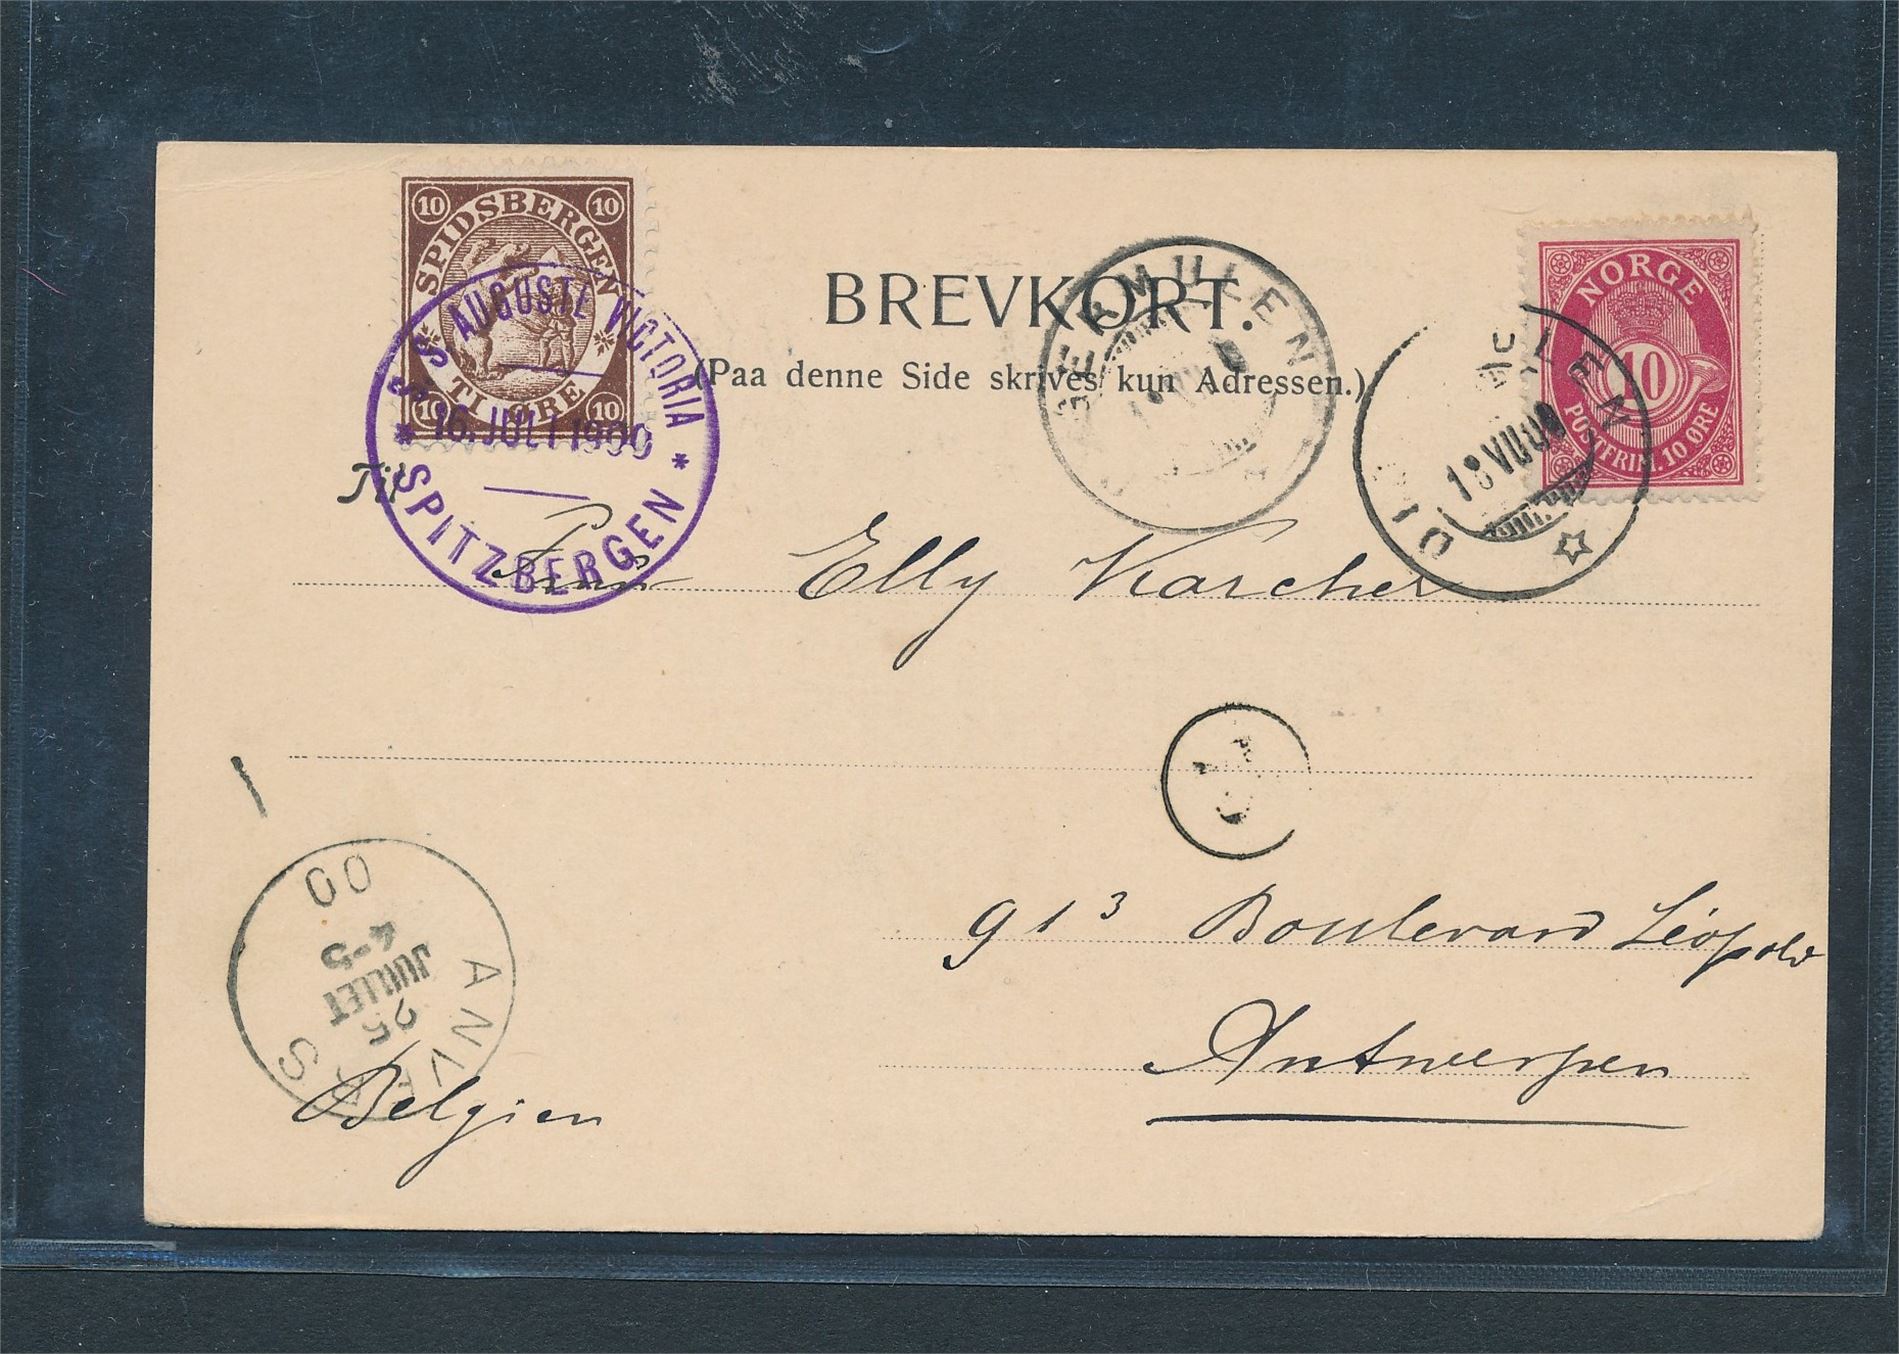 10 SPIDSBERGEN 10
10 TI ØRE 10
S.S. AUGUSTE VICTORIA
16. JULI 1900
SPITZBERGEN
BREVKORT.
(Paa denne Side skrives kun Adressen.)
NORGE
10
POSTFRIM. 10 ØRE
18 VII 00
Til
Elly Karcher
91³ Boulevard Léopold
Antwerpen
Belgien
ANVERS
25
JUILLET
4-5
00